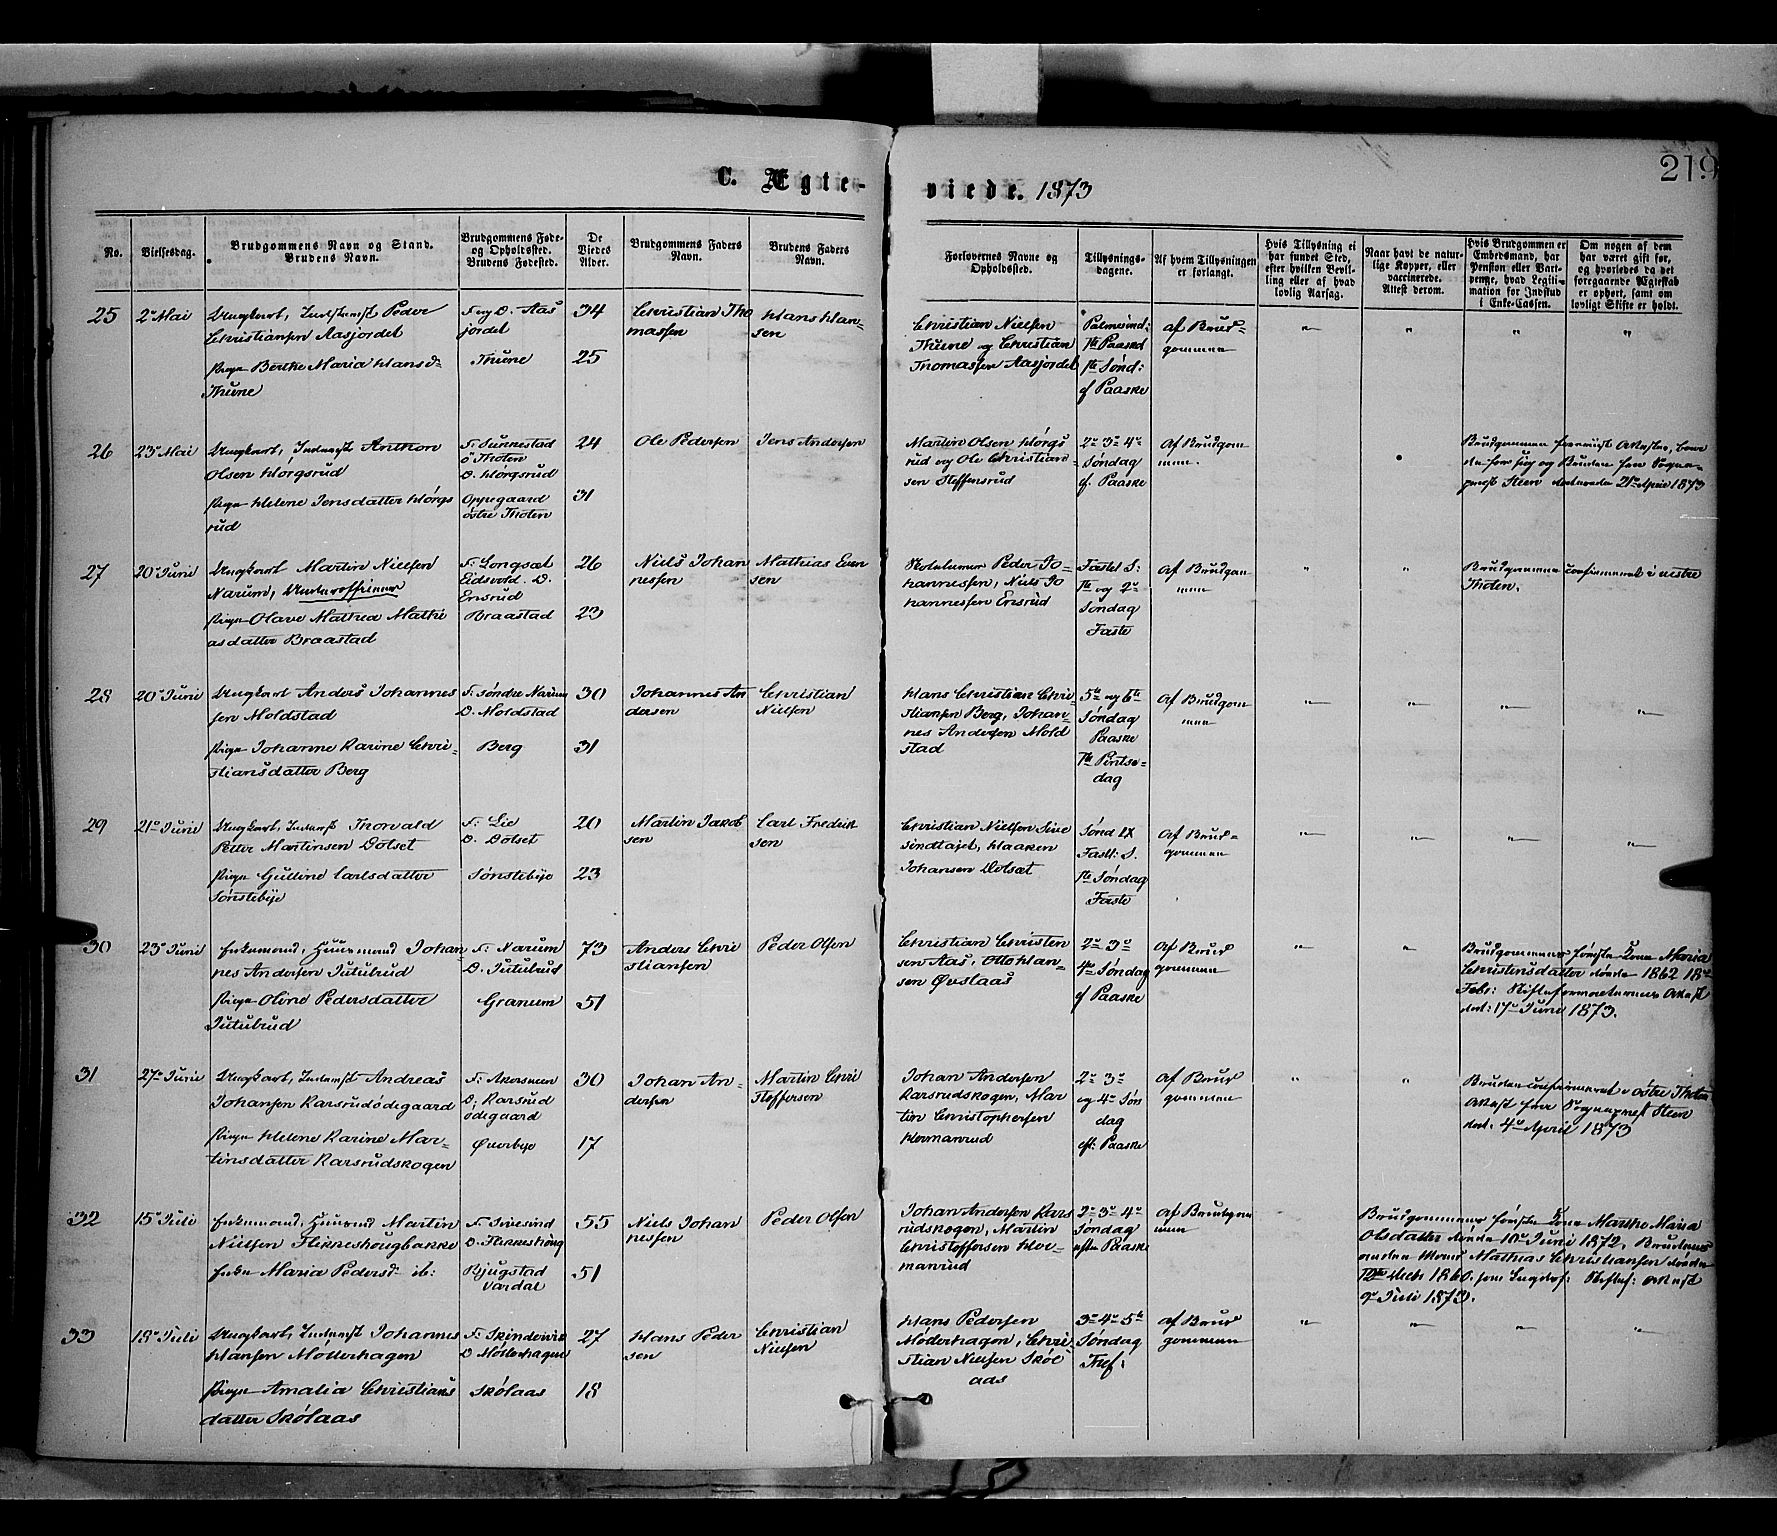 219
C. Ægte-
viede. 1873
No.
Vielsesdag.
Brudgommens Navn og Stand.
Brudens Navn.
Brudgommens Føde-
og Opholdssted.
Brudens Fødested.
De
Viedes
Alder.
Brudgommens Faders
Navn.
Brudens Faders
Navn.
Forlovernes Navne og
Opholdssted.
Tillysnings-
dagene.
Af hvem Tillysningen
er forlangt.
Hvis Tillysning ei
har fundet Sted,
efter hvilken Bevil-
ling eller af hvad
lovlig Aarsag.
Naar havt de natur-
lige Kopper, eller
vaccinerede.
Attest derom.
Hvis Brudgommen er
Embedsmand, har
Pension eller Vart-
penge, hvad Legiti-
mation for Indskud
i Enke-Cassen.
Om nogen af dem
har været gift før,
og hvorledes da det
foregaaende Ægteskab
er ophørt, samt om
lovligt Skifte er holdt.
25
2 Mai
Ungkarl, Inderst Peder
Christiansen Aasjordet
Pige Berthe Maria Hansd:
Thune
F og O. Aas
jordet
Thune
34
25
Christian Tho
massen
Hans Han-
sen
Christian Nielsen
Thune og Christian
Thomassen Aasjordet
Palmesønd:
1ste Paasked
1ste Sønd:
ef Paaske
af Brud-
gommen
26
23 Mai
Ungkarl, Inderst Anthon
Olsen Hørgsrud
Pige Helene Jensdatter Hørgs
rud
F: Sunnestad
ø Thoten
O. Hørgsrud
Oppegaard
østre Thoten
24
31
Ole Pedersen
Jens Andersen
Martin Olsen Hørgs
rud og Ole Christian-
sen Steffensrud
2 3 4
Søndag
ef. Paaske
af Brudgom
men.
Brudgommen forevist Attester, baade
for sig og Bruden fra Sogne-
prest Steen dateret 21 April 1873
27
20 Juni
Ungkarl Martin Nielsen
Narum, Underofficeer
Pige Olave Mathea Mathi
asdatter Braastad
F: Longsæt
Eidsvold. O.
Ensrud
Braastad
26
23
Niels Johan
nessen
Mathias Even
sen
Skolelærer Peder Jo-
hannessen, Niels Jo
hannessen Ensrud
Fastel S:
1ste og 2
Søndag
Faste
af Brudgom
men
Brudgommen confirmeret i vestre
Thoten.
28
20 Juni
Ungkarl Anders Johannes
sen Moldstad
Pige Johanne Karine Chri-
stiansdatter Berg
F: søndre Narum
O. Moldstad
Berg
30
31
Johannes An
dersen
Christian
Nielsen
Hans Christian Chri-
stiansen Berg, Johan-
nes Andersen Mold
stad
5te og 6te
Søndag
Paaske
1ste Pintse-
dag
af Brudgom
men
29
21 Juni
Ungkarl, Inderst Thorvald
Petter Martinsen Dolset
Pige Gulline Carlsdatter
Sønstebye
F: Lie
O. Dolset
Sønstebye
20
23
Martin Jakob
sen
Carl Fredrik
sen
Christian Nielsen Sive
sindtajet, Haaken
Johansen Dolsæt
Sønd LX
Fastl: S.
1ste Søndag
Faste
af Brud-
gommen
30
23 Juni
Enkemand, Huusmand Johan
nes Andersen Tutulrud
Pige Oline Pedersdatter
Tutulrud
F: Narum
O. Tutulrud
Granum
73
51
Anders Chri
stiansen
Peder Olsen
Christian Christen
sen Aas, Otto Han-
sen Øvslaas
2 3
4de Søndag
ef Paaske
af Brud
gommen
Brudgommens første Kone Maria
Christensdatter døde 1862 18
Febr: Skifteforvalterens Attest
dat: 17 Juni 1873.
31
27 Juni
Ungkarl, Inderst Andreas
Johansen Karsrudødegaard
Pige Helene Karine Mar-
tinsdatter Karsrudskogen
F: Akersveen
O: Karsrud
ødegaard
Øverbye
30
17
Johan An-
dersen
Martin Chri
stoffersen
Johan Andersen
Karsrudskogen, Mar
tin Christophersen
Hovmanrud
2 3
og 4 Søn
dag
eft: Paaske
af Brud
gommen
Bruden confirmeret i østre Thoten
Attest fra Sogneprest Steen
dat: 4 April 1873
32
15 Juli
Enkemand, Huusmd Martin
Nielsen Flikkeshougbakke
Enke Maria Pedersd: ib:
F: Sivesind
O. Flikkeshoug
Bjugstad
Vardal
55
51
Niels Johan
nessen
Peder Olsen
Johan Andersen Kars
rudskogen, Martin
Christoffersen Hov-
manrud
2 3 4
Søndag
efter Paaske
af Brudgom
men
Brudgommens første Kone Marthe Maria
Olsdatter døde 10 Juni 1872, Brudens
anden Mand Mathias Christiansen døde
Decb 1860. Skiftef: Attest
9 Juli 1873.
33
18 Juli
Ungkarl, Inderst Johannes
Hansen Mølterhagen
Pige Amalia Christians
datter Skølaas
F: Skindervie
O Mølterhagen
Skølaas
27
18
Hans Peder
sen
Christian
Nielsen
Hans Pedersen
Møderhagen, Chri-
stian Nielsen Skøl
aas
3 4 5te
Søndag
Tref:
af Brud
gommen